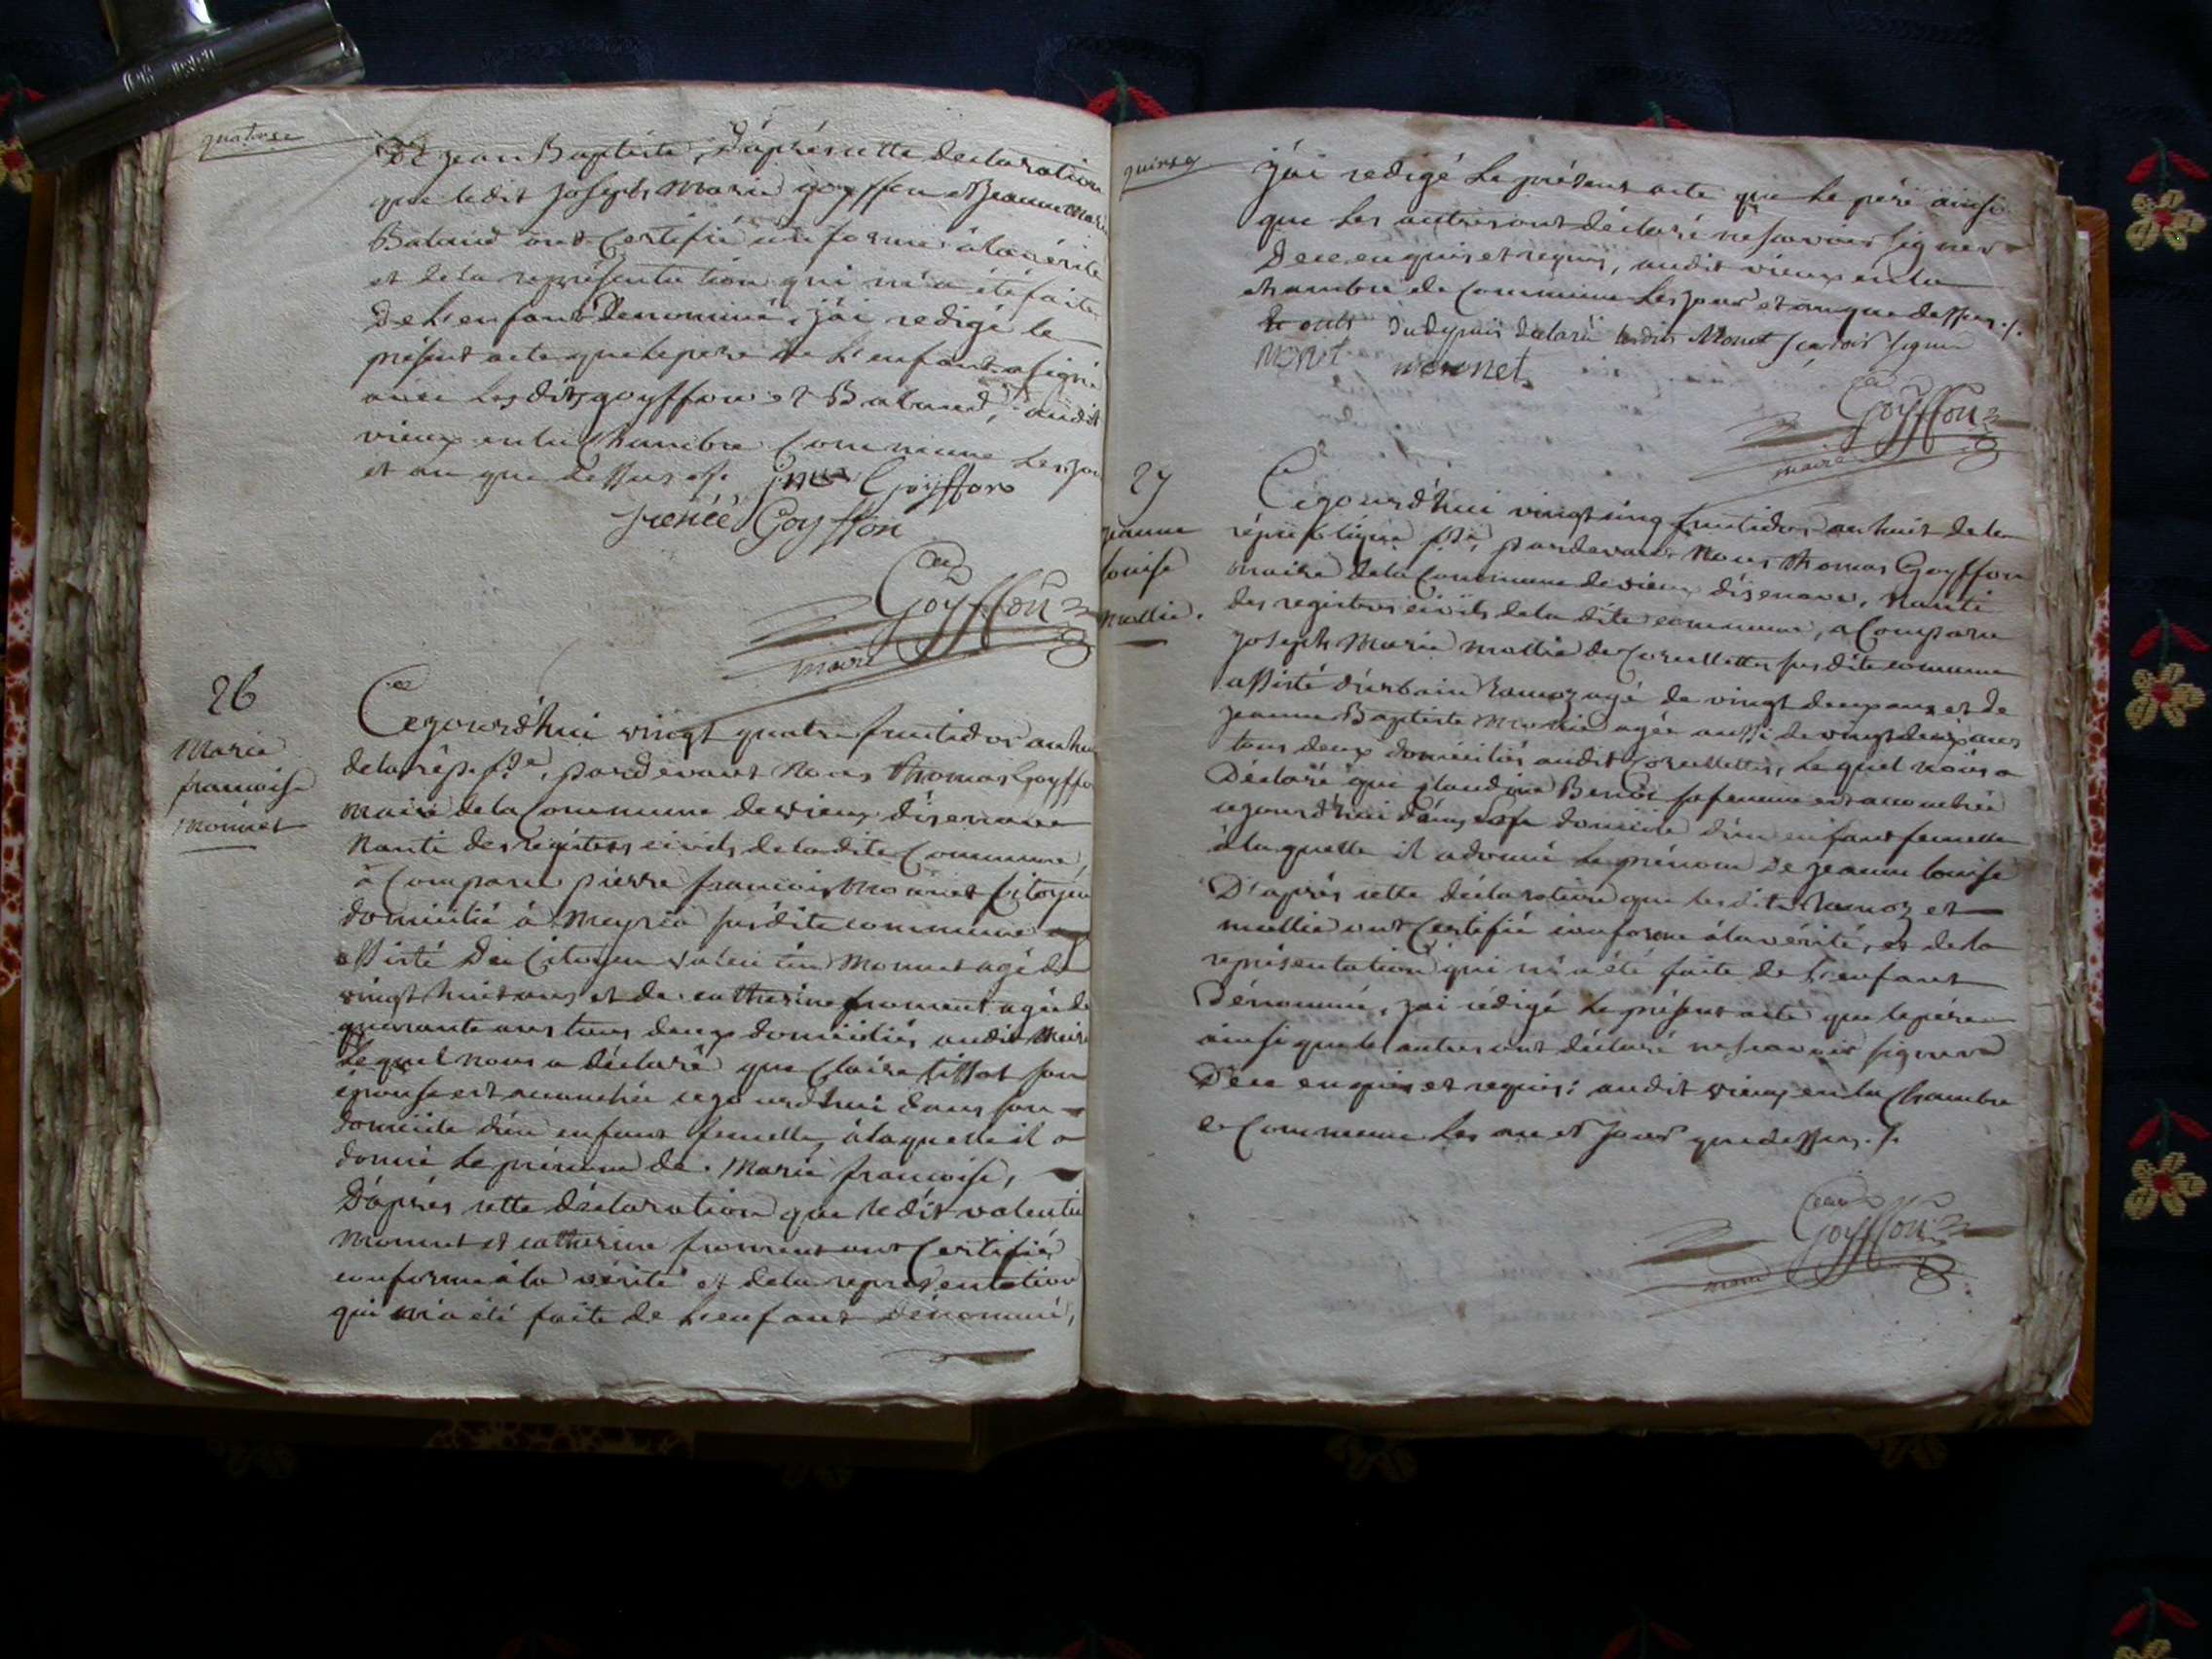 quatorse
De jean Baptiste, D'après cette declaration
que ledit Joseph Marie goyffon et Jeanne Marie
Baland ont Certifié conforme à la vérité
et de la représentation qui m'a été faite
De L'enfant Denommé, j'ai redigé le
présent acte que le pere de L'enfant a signé
avec Lesdits goyffon et Baland, audit
vieux en la Chambre Commune Les jour
et an que dessus
Goyffon
Goyffon
Goyffon
maire
26
Marie
francoise
Monnet
Cejourd'hui vingt quatre fructidor an huit
de la rép. fse, pardevant Nous thomas Goyffon
maire de la Commune de vieux d'isenave
Nanti des régistres civils de la dite Commune,
à Comparu pierre francois Monnet Citoyen
domicilié à Meyria susdite commune
assisté Du Citoyen valentin Monnet agé de
vingt huit ans et de catherine froment agée de
quarante ans tous deux domiciliés audit Meiria
Lequel nous a déclaré que Claire tissot son
épouse est acouchée cejourd'hui dans son
domicile d'un enfant femelle, à laquelle il a
donné Le prénom de Marie francoise,
D'après cette déclaration que ledit valentin
Monnet et catherine froment ont Certifié
conforme à la vérité et de la représentation
qui m'a été faite de L'enfant Dénommé,
quinse
j'ai redigé Le présent acte que Le père ainsi
que Les autres ont déclaré ne savoir signer
De ce enquis et requis, audit vieux en la
chambre de Commune Les jour et an que dessus ./.
déclaré ledit Monet savoir signer
monet monnet
Goyffon
maire
27
jeanne
louise
mallie.
Cejourd'hui vingt cinq fructidor an huit de la
république fse, pardevant Nous thomas Goyffon
maire de la Commune de vieux d'isenave, Nanti
des registres civils de la dite commune, a Comparu
joseph Marie mallie de Corcellette susdite commune
assisté d'urbain ramoz agé de vingt deux ans et de
jeanne Baptiste Mallie agée aussi de vingt deux ans
tous deux domiciliés audit Corcellettes, Lequel nous a
Déclaré que Claudine Benoit sa femme est acouchée
cejourd'hui dans son domicile d'un enfant femelle
à laquelle il a donné Le prénom De jeanne louise
D'après cette déclaration que lesdits ramoz et
mallie ont Certifié conforme à la vérité, et de la
représentation qui m'a été faite de L'enfant
Dénommé, j'ai rédigé Le présent acte que le père
ainsi que les autres ont déclaré ne savoir signer
De ce enquis et requis; audit vieux en la Chambre
de Commune Les an et jour que dessus ./.
Goyffon
maire